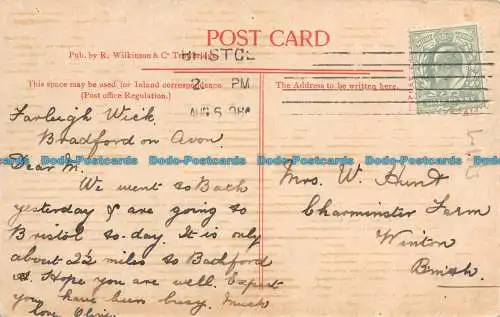 POST CARD
Pub. by R. Wilkinson & Co Trowbridge
BRISTOL
2 PM
AUG 5 08
This space may be used for Inland correspondence
(Post office Regulation.)
The Address to be written here.
Farleigh Wick
Bradford on Avon.
Dear M.
We went to Bath
yesterday & are going to
Bristol to-day. It is only
about 2½ miles to Bathford
Hope you are well. Expect
you have been busy. Much
love Olive.
Mrs. W. Hunt
Charminster Farm
Winton